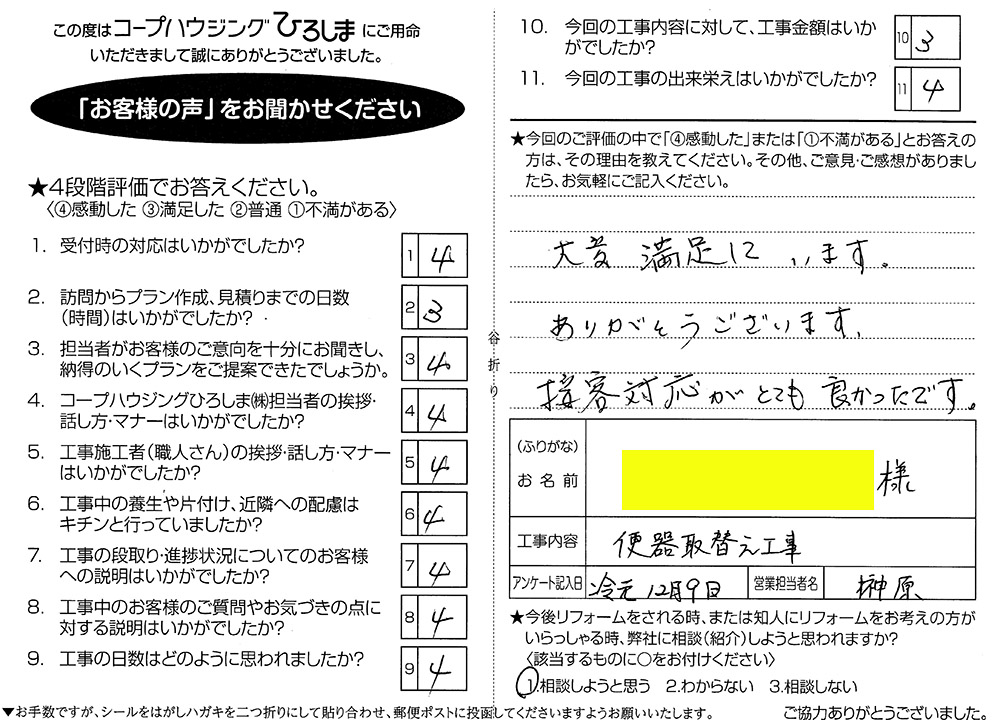 この度はコープハウジングひろしまにご用命
いただきまして誠にありがとうございました。
「お客様の声」をお聞かせください
★4段階評価でお答えください。
〈④感動した ③満足した ②普通 ①不満がある〉
1. 受付時の対応はいかがでしたか?
1 4
2. 訪問からプラン作成、見積りまでの日数
(時間)はいかがでしたか?
2 3
3. 担当者がお客様のご意向を十分にお聞きし、
納得のいくプランをご提案できたでしょうか。
3 4
4. コープハウジングひろしま㈱担当者の挨拶・
話し方・マナーはいかがでしたか?
4 4
5. 工事施工者(職人さん)の挨拶・話し方・マナー
はいかがでしたか?
5 4
6. 工事中の養生や片付け、近隣への配慮は
キチンと行っていましたか?
6 4
7. 工事の段取り・進捗状況についてのお客様
への説明はいかがでしたか?
7 4
8. 工事中のお客様のご質問やお気づきの点に
対する説明はいかがでしたか?
8 4
9. 工事の日数はどのように思われましたか?
9 4
▼お手数ですが、シールをはがしハガキを二つ折りにして貼り合わせ、郵便ポストに投函してくださいますようお願いいたします。
谷折り
10. 今回の工事内容に対して、工事金額はいか
がでしたか?
10 3
11. 今回の工事の出来栄えはいかがでしたか?
11 4
★今回のご評価の中で「④感動した」または「①不満がある」とお答えの
方は、その理由を教えてください。その他、ご意見・ご感想がありまし
たら、お気軽にご記入ください。
大変 満足に います。
ありがとうございます。
接客対応がとても 良かったです。
(ふりがな)
お名前
様
工事内容 便器取替え工事
アンケート記入日 令元 12月9日 営業担当者名 榊原
★今後リフォームをされる時、または知人にリフォームをお考えの方が
いらっしゃる時、弊社に相談(紹介)しようと思われますか?
〈該当するものに○をお付けください〉
1.相談しようと思う 2.わからない 3.相談しない
ご協力ありがとうございました。